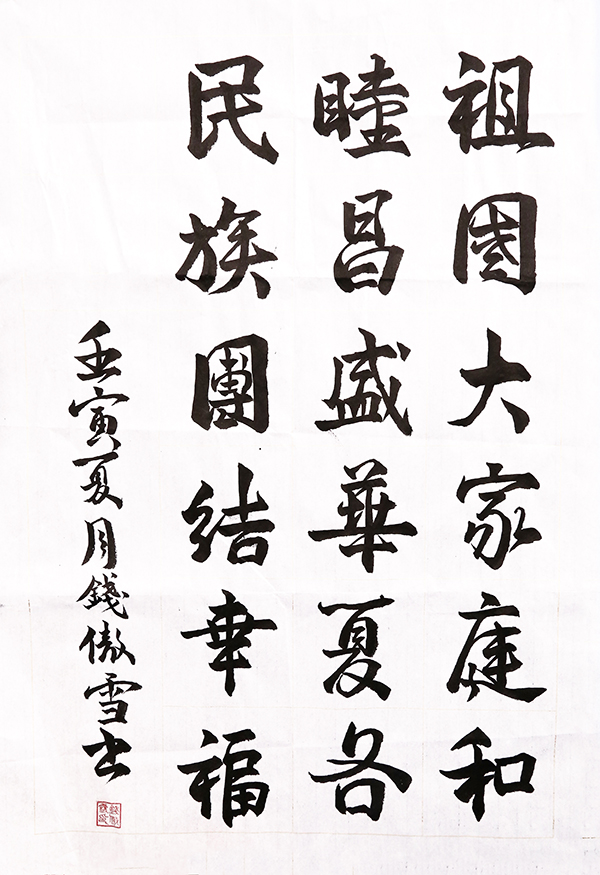 祖國大家庭和
睦昌盛華夏各
民族團結幸福
壬寅夏月錢傲雪书